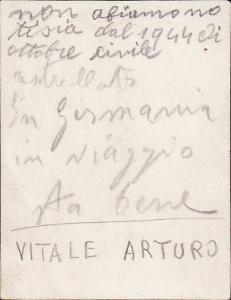 non abiamo no
tisia dal 1944 di
ottobre civile
rastrellato
in Germania
in viaggio
sta bene
VITALE ARTURO